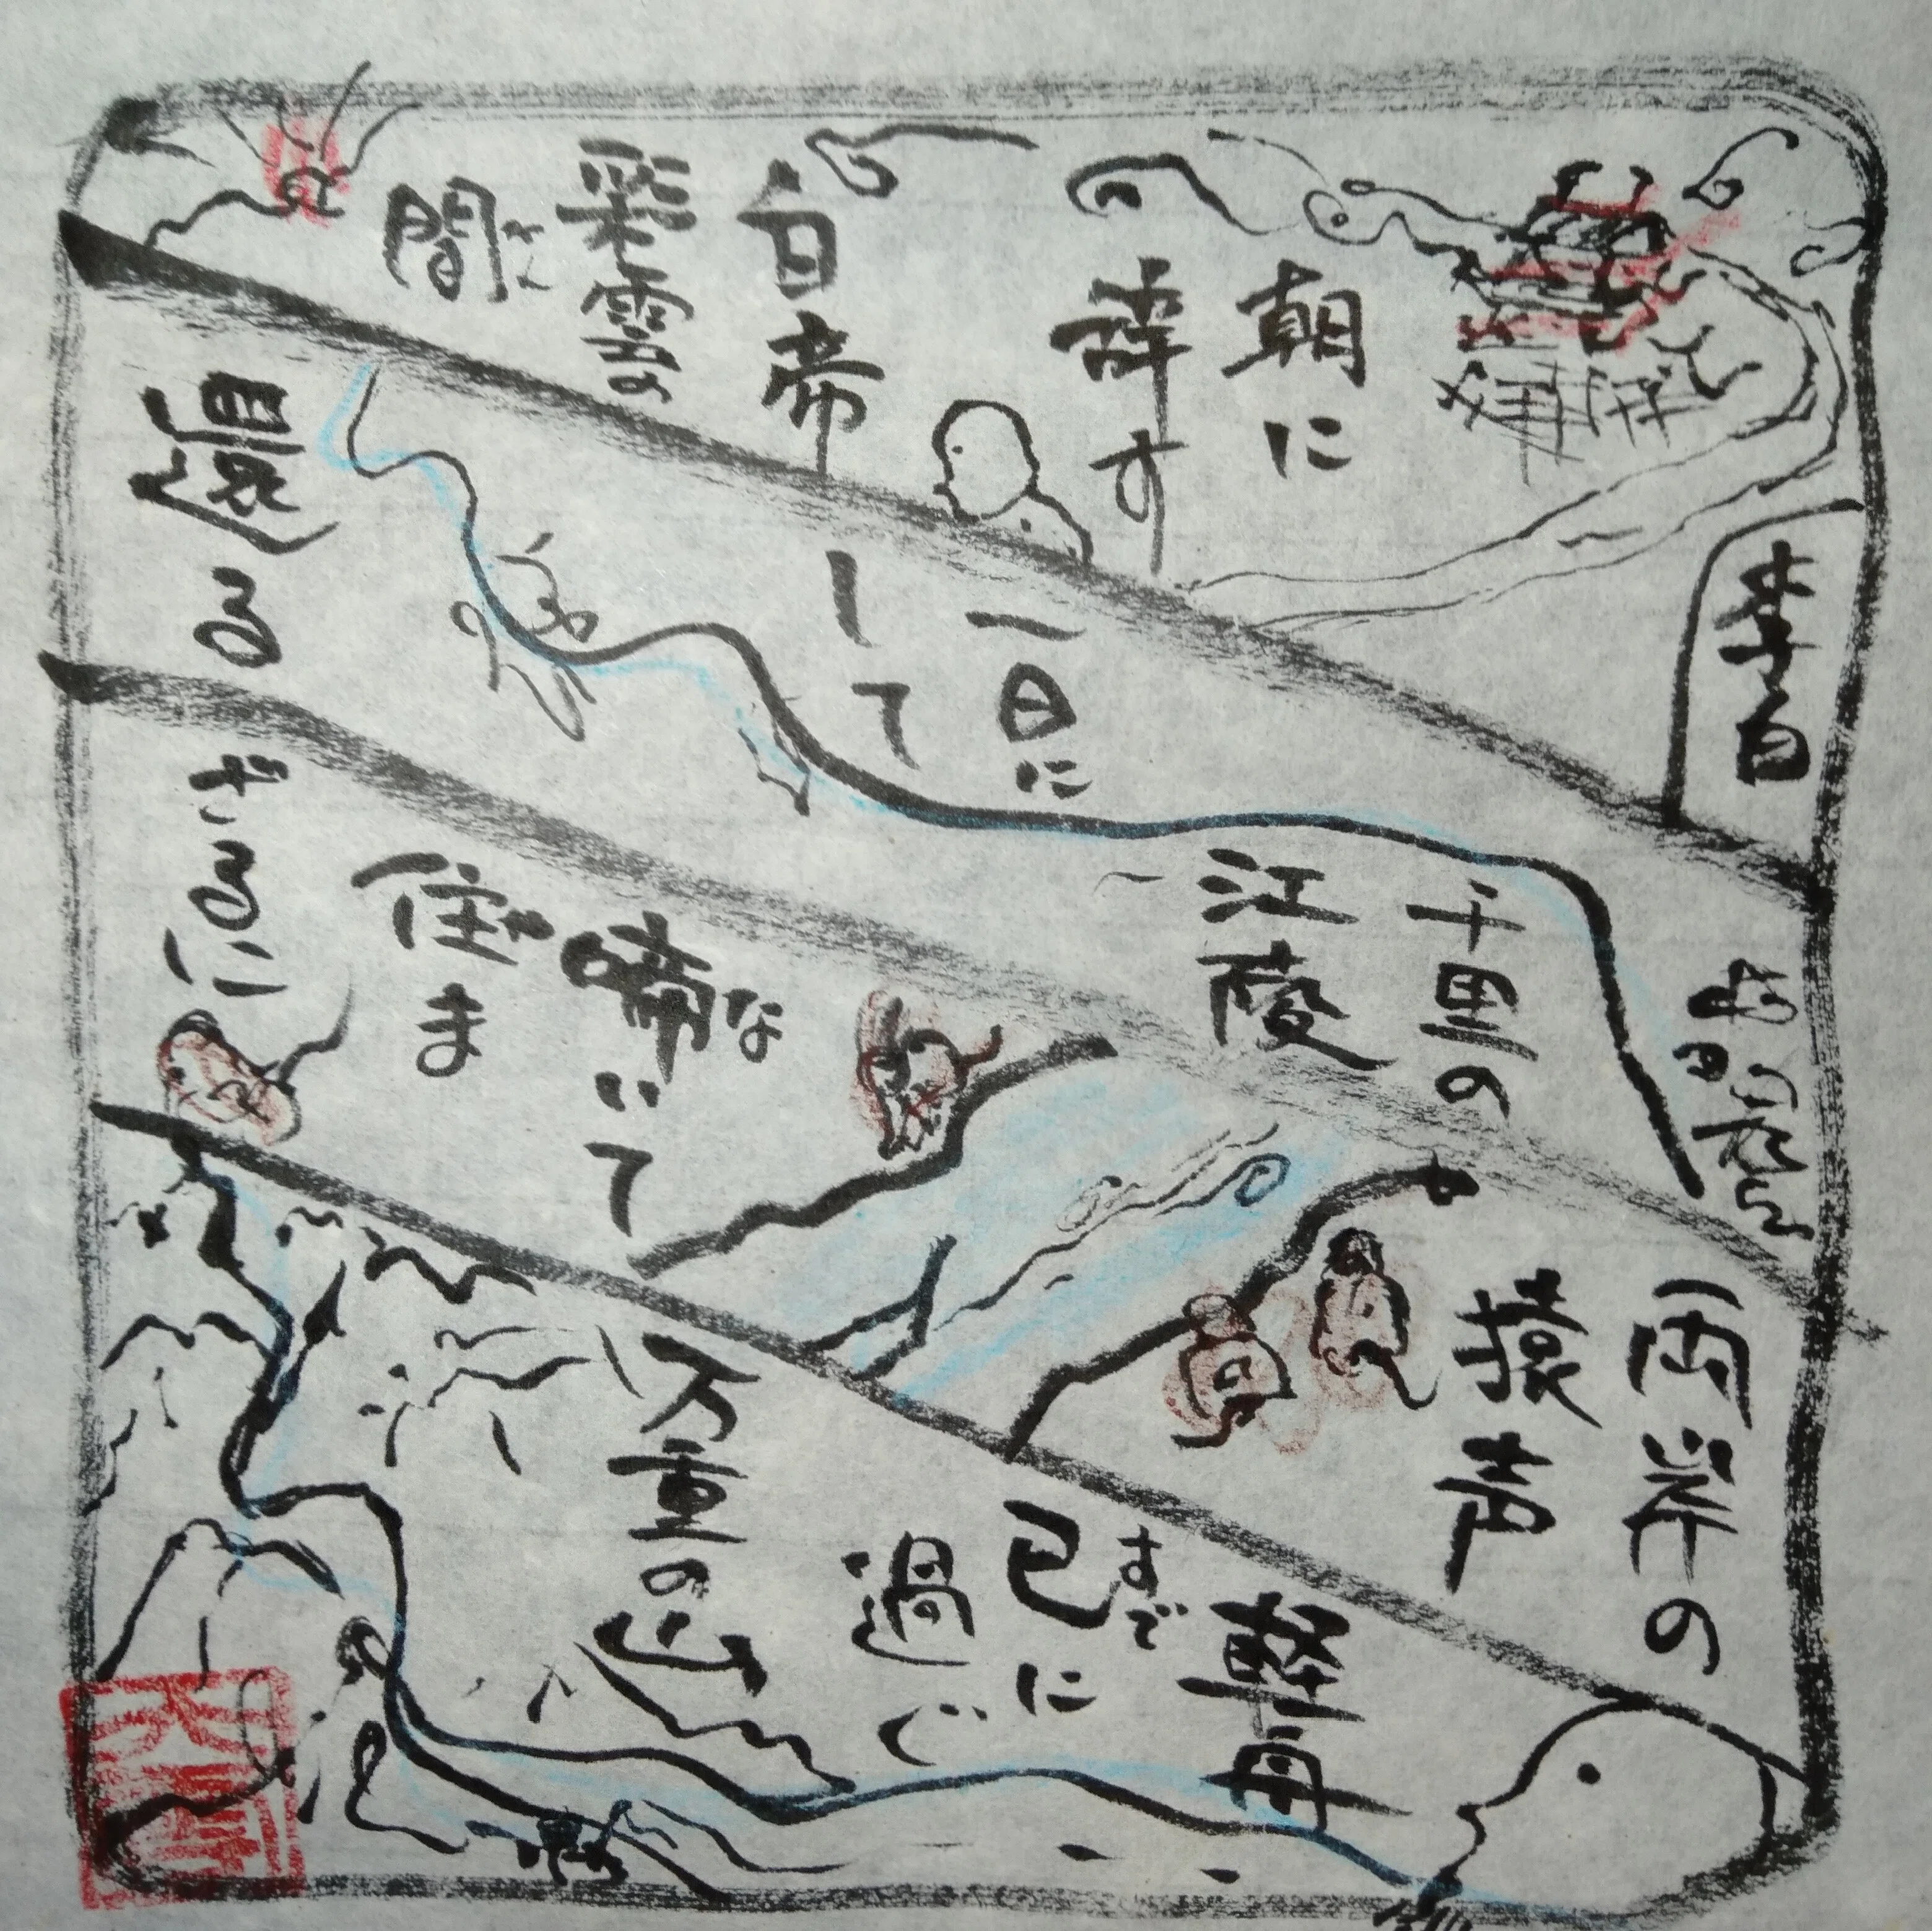 李白
朝に
辞す
白帝
彩雲の
間
千里の
江陵
一日に
して
還る
両岸の
猿声
啼いて
な
住ま
ざるに
軽舟
已に
すで
過ぐ
万重の山